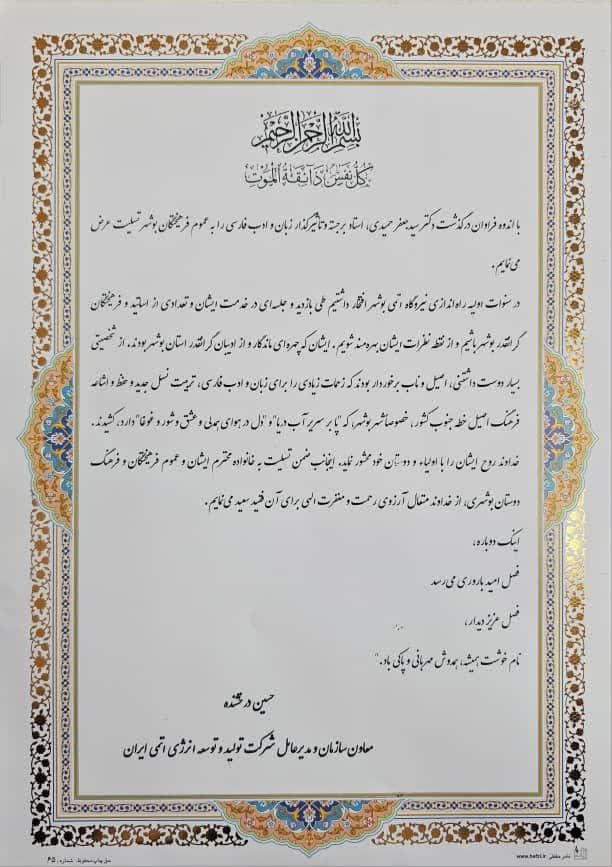 بسم الله الرحمن الرحیم
كُلُّ نَفْسٍ ذَآئِقَةُ الْمَوْتِ
با اندوه فراوان درگذشت دکتر سید جعفر حمیدی، استاد برجسته و تاثیرگذار زبان و ادب فارسی را به عموم فرهیختگان بوشهر تسلیت عرض
می‌نمایم.
در سنوات اولیه راه‌اندازی نیروگاه اتمی بوشهر افتخار داشتیم طی بازدید و جلسه‌ای در خدمت ایشان و تعدادی از اساتید و فرهیختگان
گرانقدر بوشهر باشیم و از نقطه نظرات ایشان بهره‌مند شویم. ایشان که چهره‌ای ماندگار و از ادیبان گرانقدر استان بوشهر بودند. از شخصیتی
بسیار دوست داشتنی، اصیل و ناب برخوردار بودند که زحمات زیادی را برای زبان و ادب فارسی، تربیت نسل جدید و حفظ و اشاعه
فرهنگ اصیل خطه جنوب کشور، خصوصاً شهر بوشهر، که "پا بر سریر آب دریا" و "دل در هوای همدلی و عشق و شور و غوغا" دارد، کشیدند.
خداوند روح ایشان را با اولیاء و دوستان خود محشور نماید. اینجانب ضمن تسلیت به خانواده محترم ایشان و عموم فرهیختگان و فرهنگ
دوستان بوشهری، از خداوند متعال آرزوی رحمت و مغفرت الهی برای آن فقید سعید می‌نمایم.
اینک دوباره،
فصل امید باروری می‌رسد
فصل عزیز دیدار،
نام خوشت همیشه، همدوش مهربانی و پاکی باد."
حسین درخشنده
معاون سازمان و مدیرعامل شرکت تولید و توسعه انرژی اتمی ایران
حق چاپ محفوظ. شماره: ۶۵
www.hefzi.ir